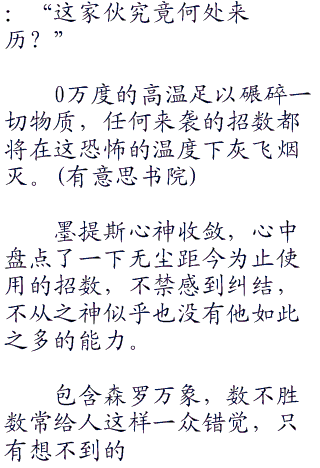 ：“这家伙究竟何处来
历？”
0万度的高温足以碾碎一
切物质，任何来袭的招数都
将在这恐怖的温度下灰飞烟
灭。(有意思书院)
墨提斯心神收敛，心中
盘点了一下无尘距今为止使
用的招数，不禁感到纠结，
不从之神似乎也没有他如此
之多的能力。
包含森罗万象，数不胜
数常给人这样一众错觉，只
有想不到的